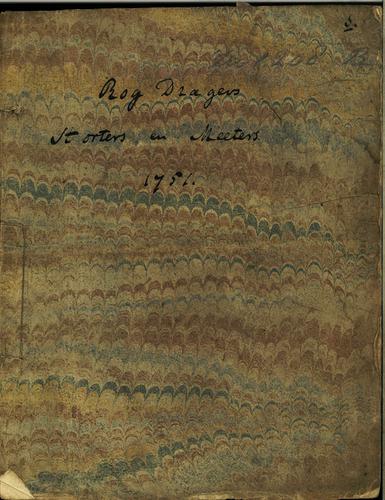 Rog Dragers
Storters en Meeters
1751.